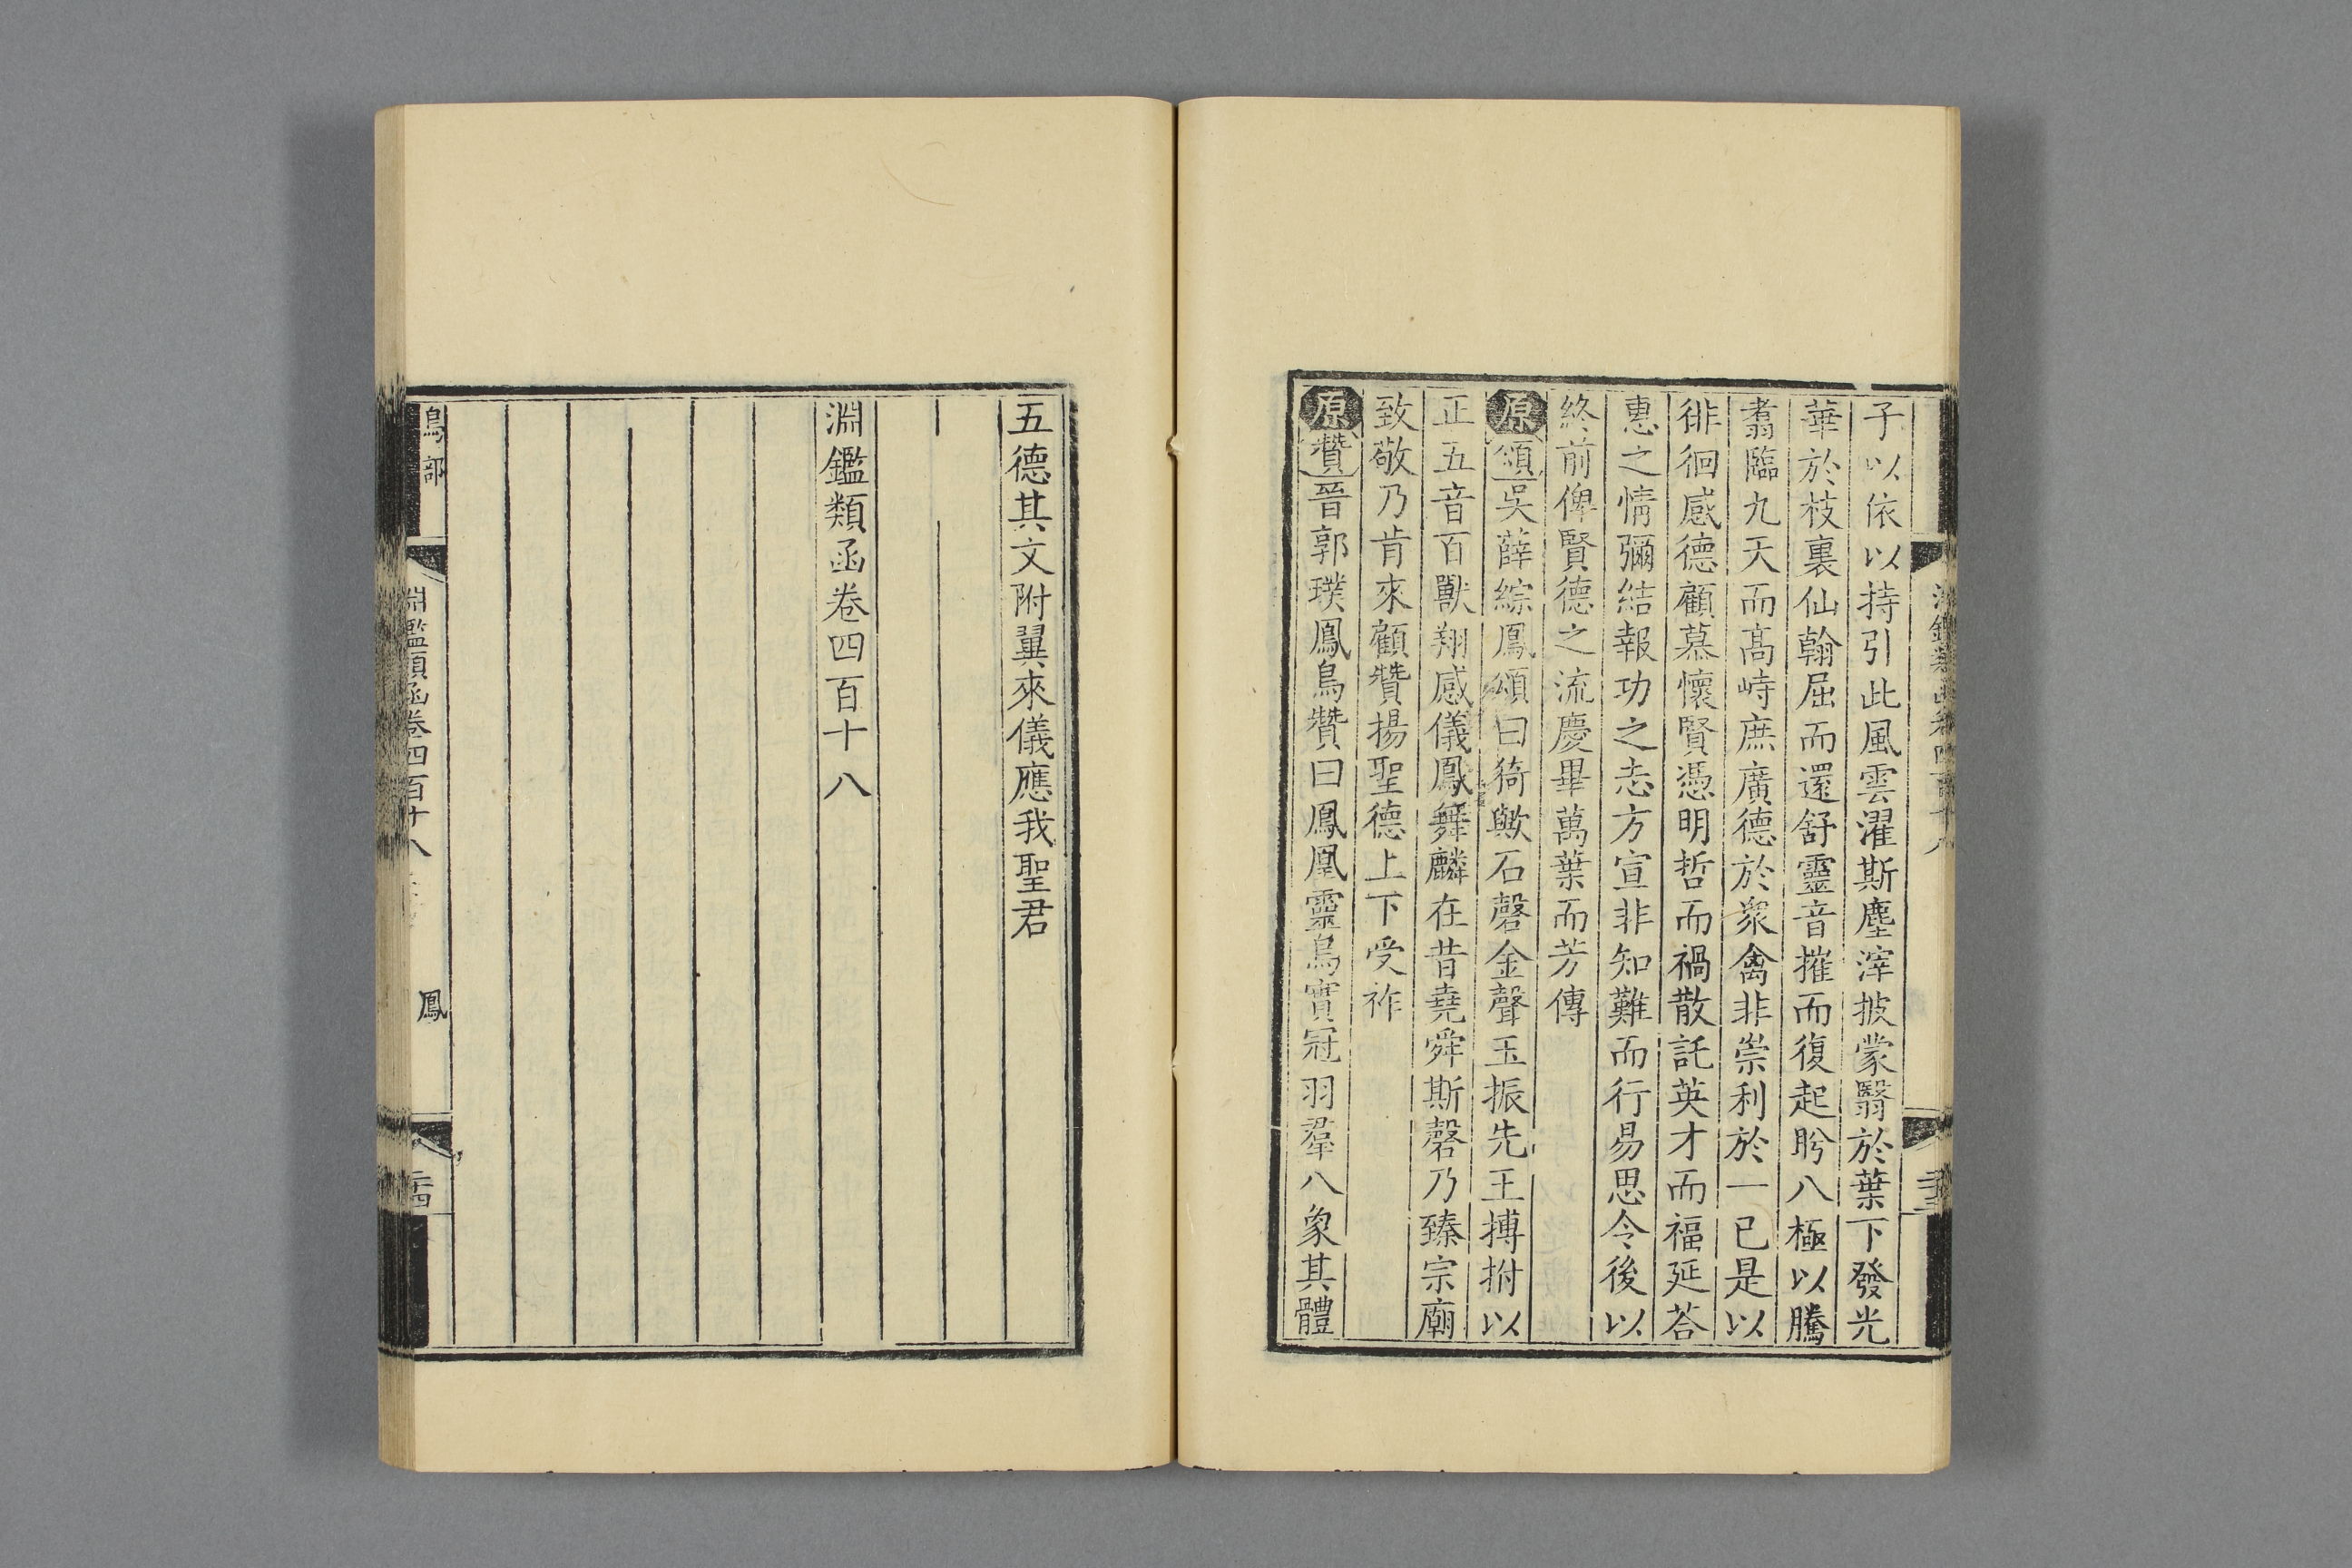 子以依以持引此風雲濯斯塵滓披蒙翳於葉下發光
華於枝裏仙翰屈而還舒靈音摧而復起眄八極以騰
翥臨九天而高峙庶廣德於衆禽非崇利於一已是以
徘徊感德顧慕懷賢憑明哲而禍散託英才而福延荅
惠之情彌結報功之志方宣非知難而行易思令後以
終前俾賢德之流慶畢萬葉而芳傳
原頌吳薛綜鳳頌曰猗歟石磬金聲玉振先王搏拊以
正五音百獸翔感儀鳳舞麟在昔堯舜斯磬乃臻宗廟
致敬乃肯來顧贊揚聖德上下受祚
原贊晉郭璞鳳鳥贊曰鳳凰靈鳥實冠羽羣八象其體
五德其文附翼來儀應我聖君
淵鑑類函卷四百十八
鳥部
淵鑑類函卷四百十八
鳳
二十四